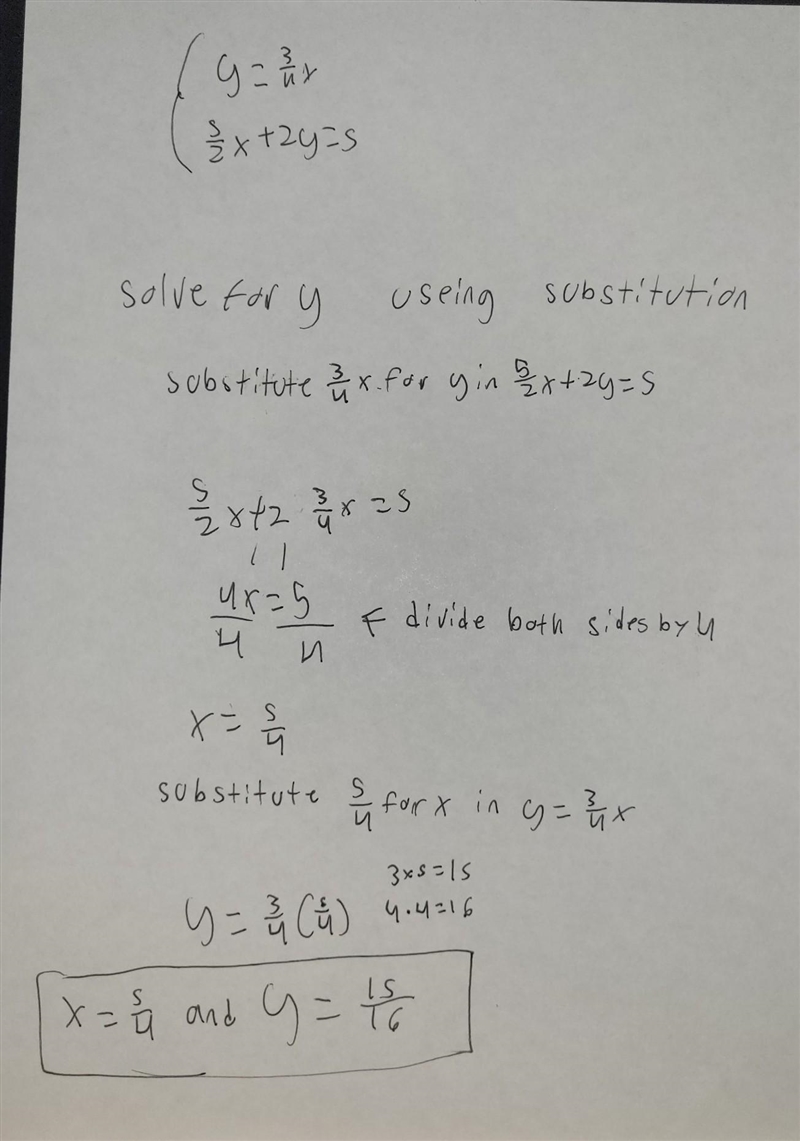 y = 3/4 x
5/2 x + 2y = 5
solve for y useing substitution
substitute 3/4 x for y in 5/2 x + 2y = 5
5/2 x + 2 3/4 x = 5
4x/4 = 5/4 ← divide both sides by 4
x = 5/4
substitute 5/4 for x in y = 3/4 x
3 x 5 = 15
y = 3/4 (5/4) 4 · 4 = 16
x = 5/4 and y = 15/16